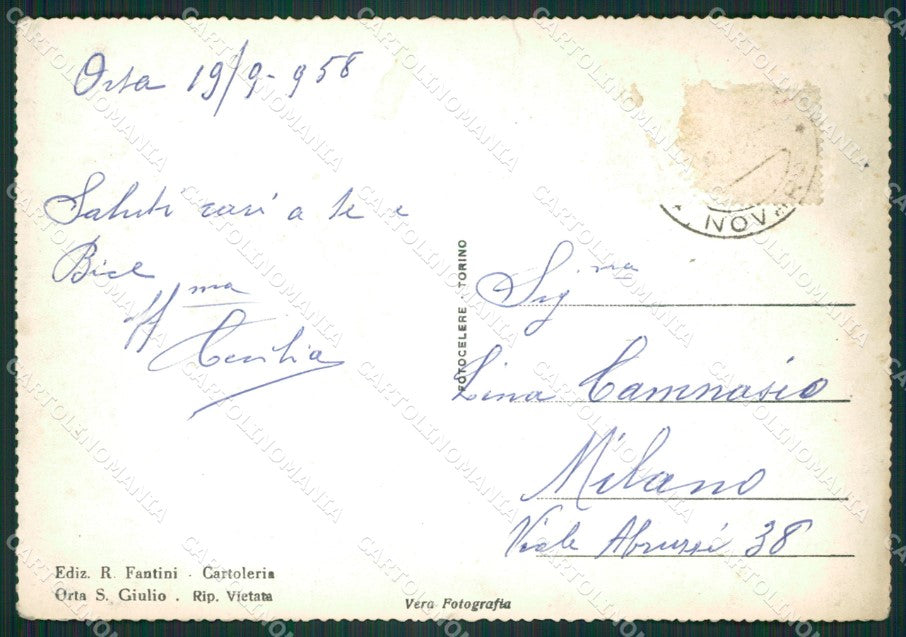 Orta 19/9-958
Saluti cari a te e
Bice
aff ma
Cecilia
NOVAR
FOTOCELERE · TORINO
Sig ma
Lina Camnasio
Milano
Viale Abruzzi 38
Ediz. R. Fantini - Cartoleria
Orta S. Giulio . Rip. Vietata
Vera Fotografia
CARTOLINOMANIA